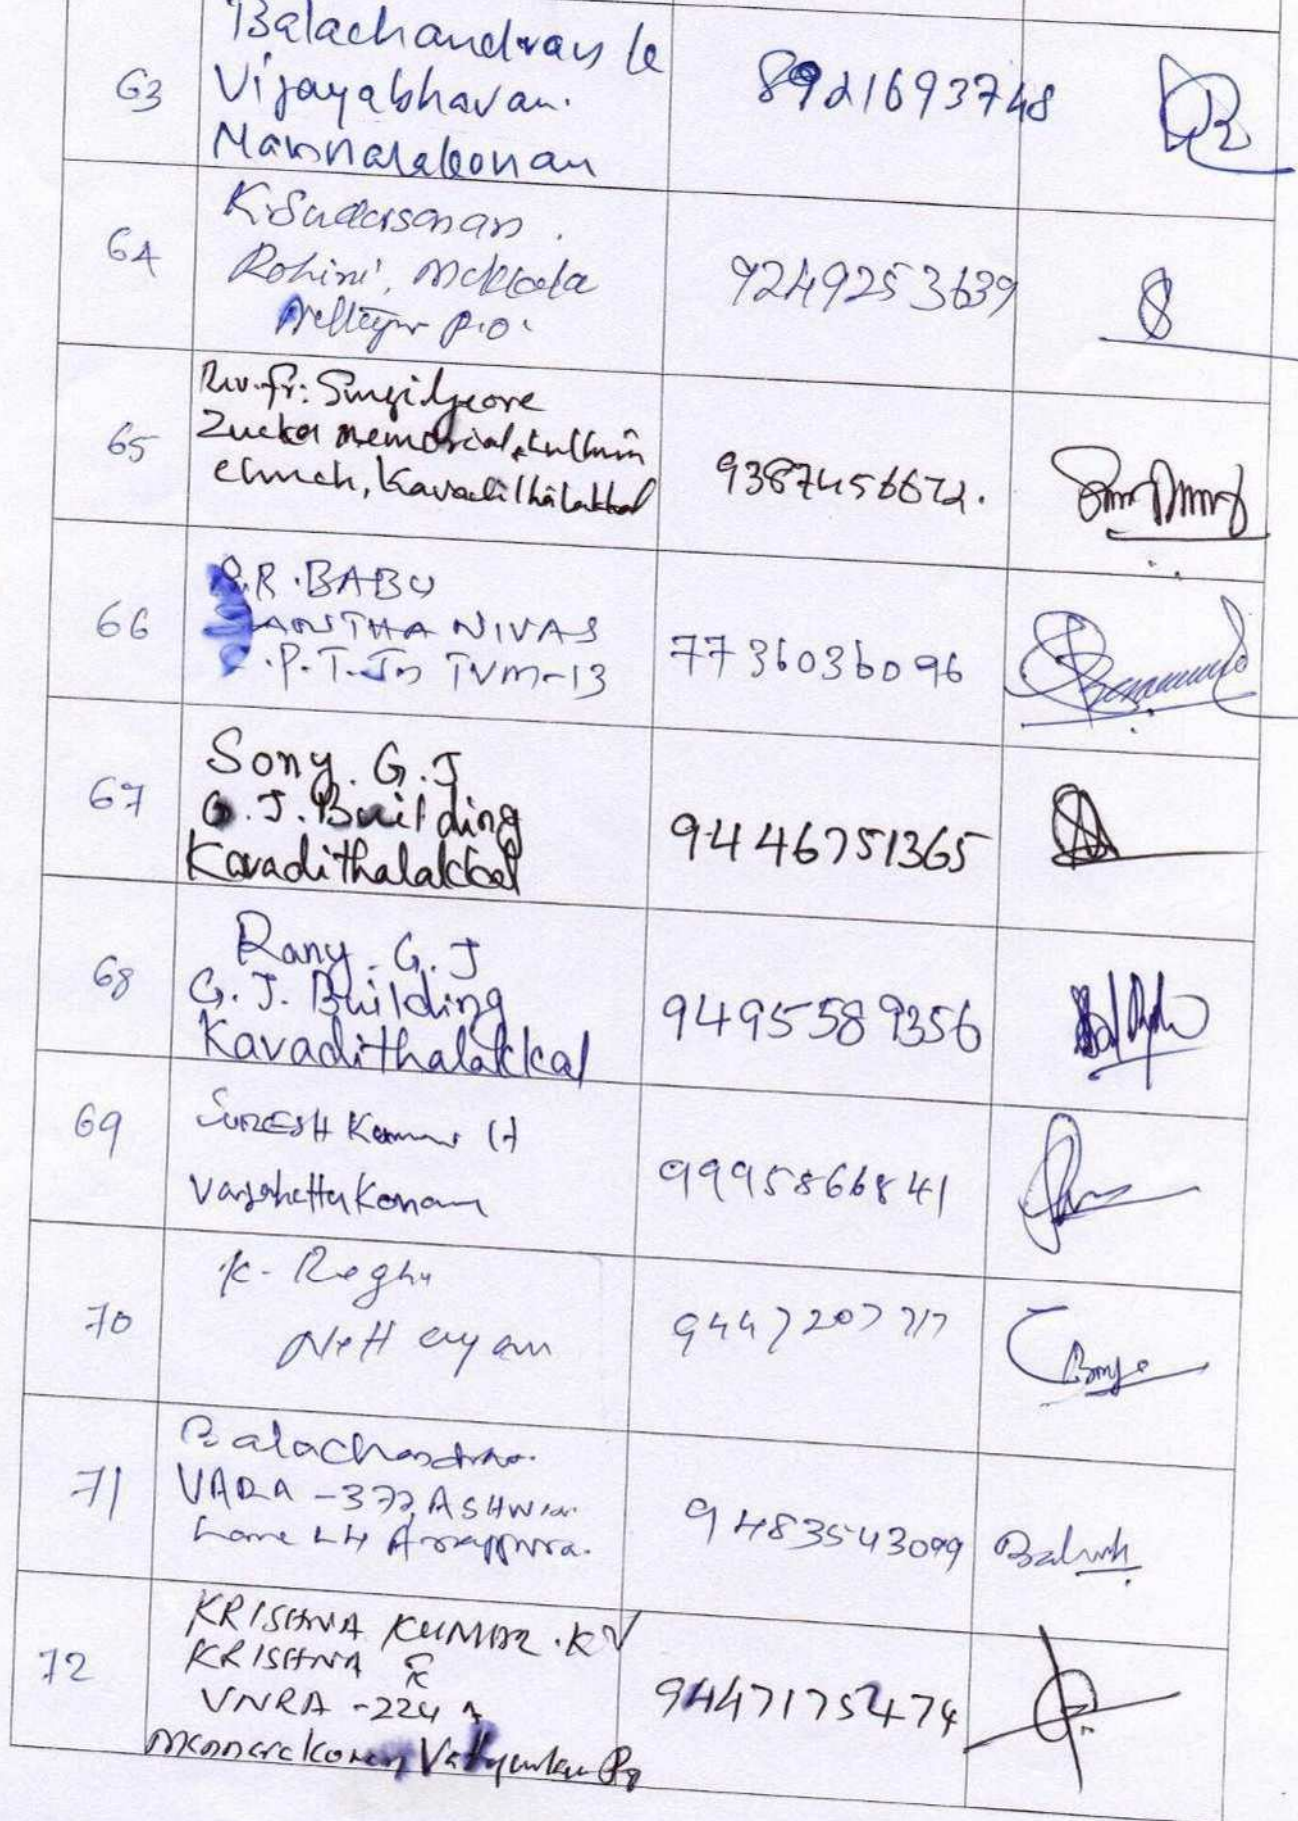 63
Balachandran
Vijayabhavan.
Mannarakonam
8921693748
64
K. Sudarsanan.
Rohini, Mekkola
P.O.
9249253639
65
Rev. Fr:
memorial
church, Kavadithalakkal
9387456672.
66
R. BABU
NIVAS
P.T. Jn TVM-13
7736036096
67
Sony. G. J
G. J. Building
Kavadithalakkal
9446751365
68
Rany. G. J
G. J. Building
Kavadithalakkal
9495589356
69
SURESH Kumar
Konam
9995866841
70
K. Reghu
Nettayam
9447207717
71
Balachandran.
VARA -372, ASHWIN
9483543099
72
KRISHNA KUMAR . K V
KRISHNA
VNRA -224 A
Mannarakonam
94471752474